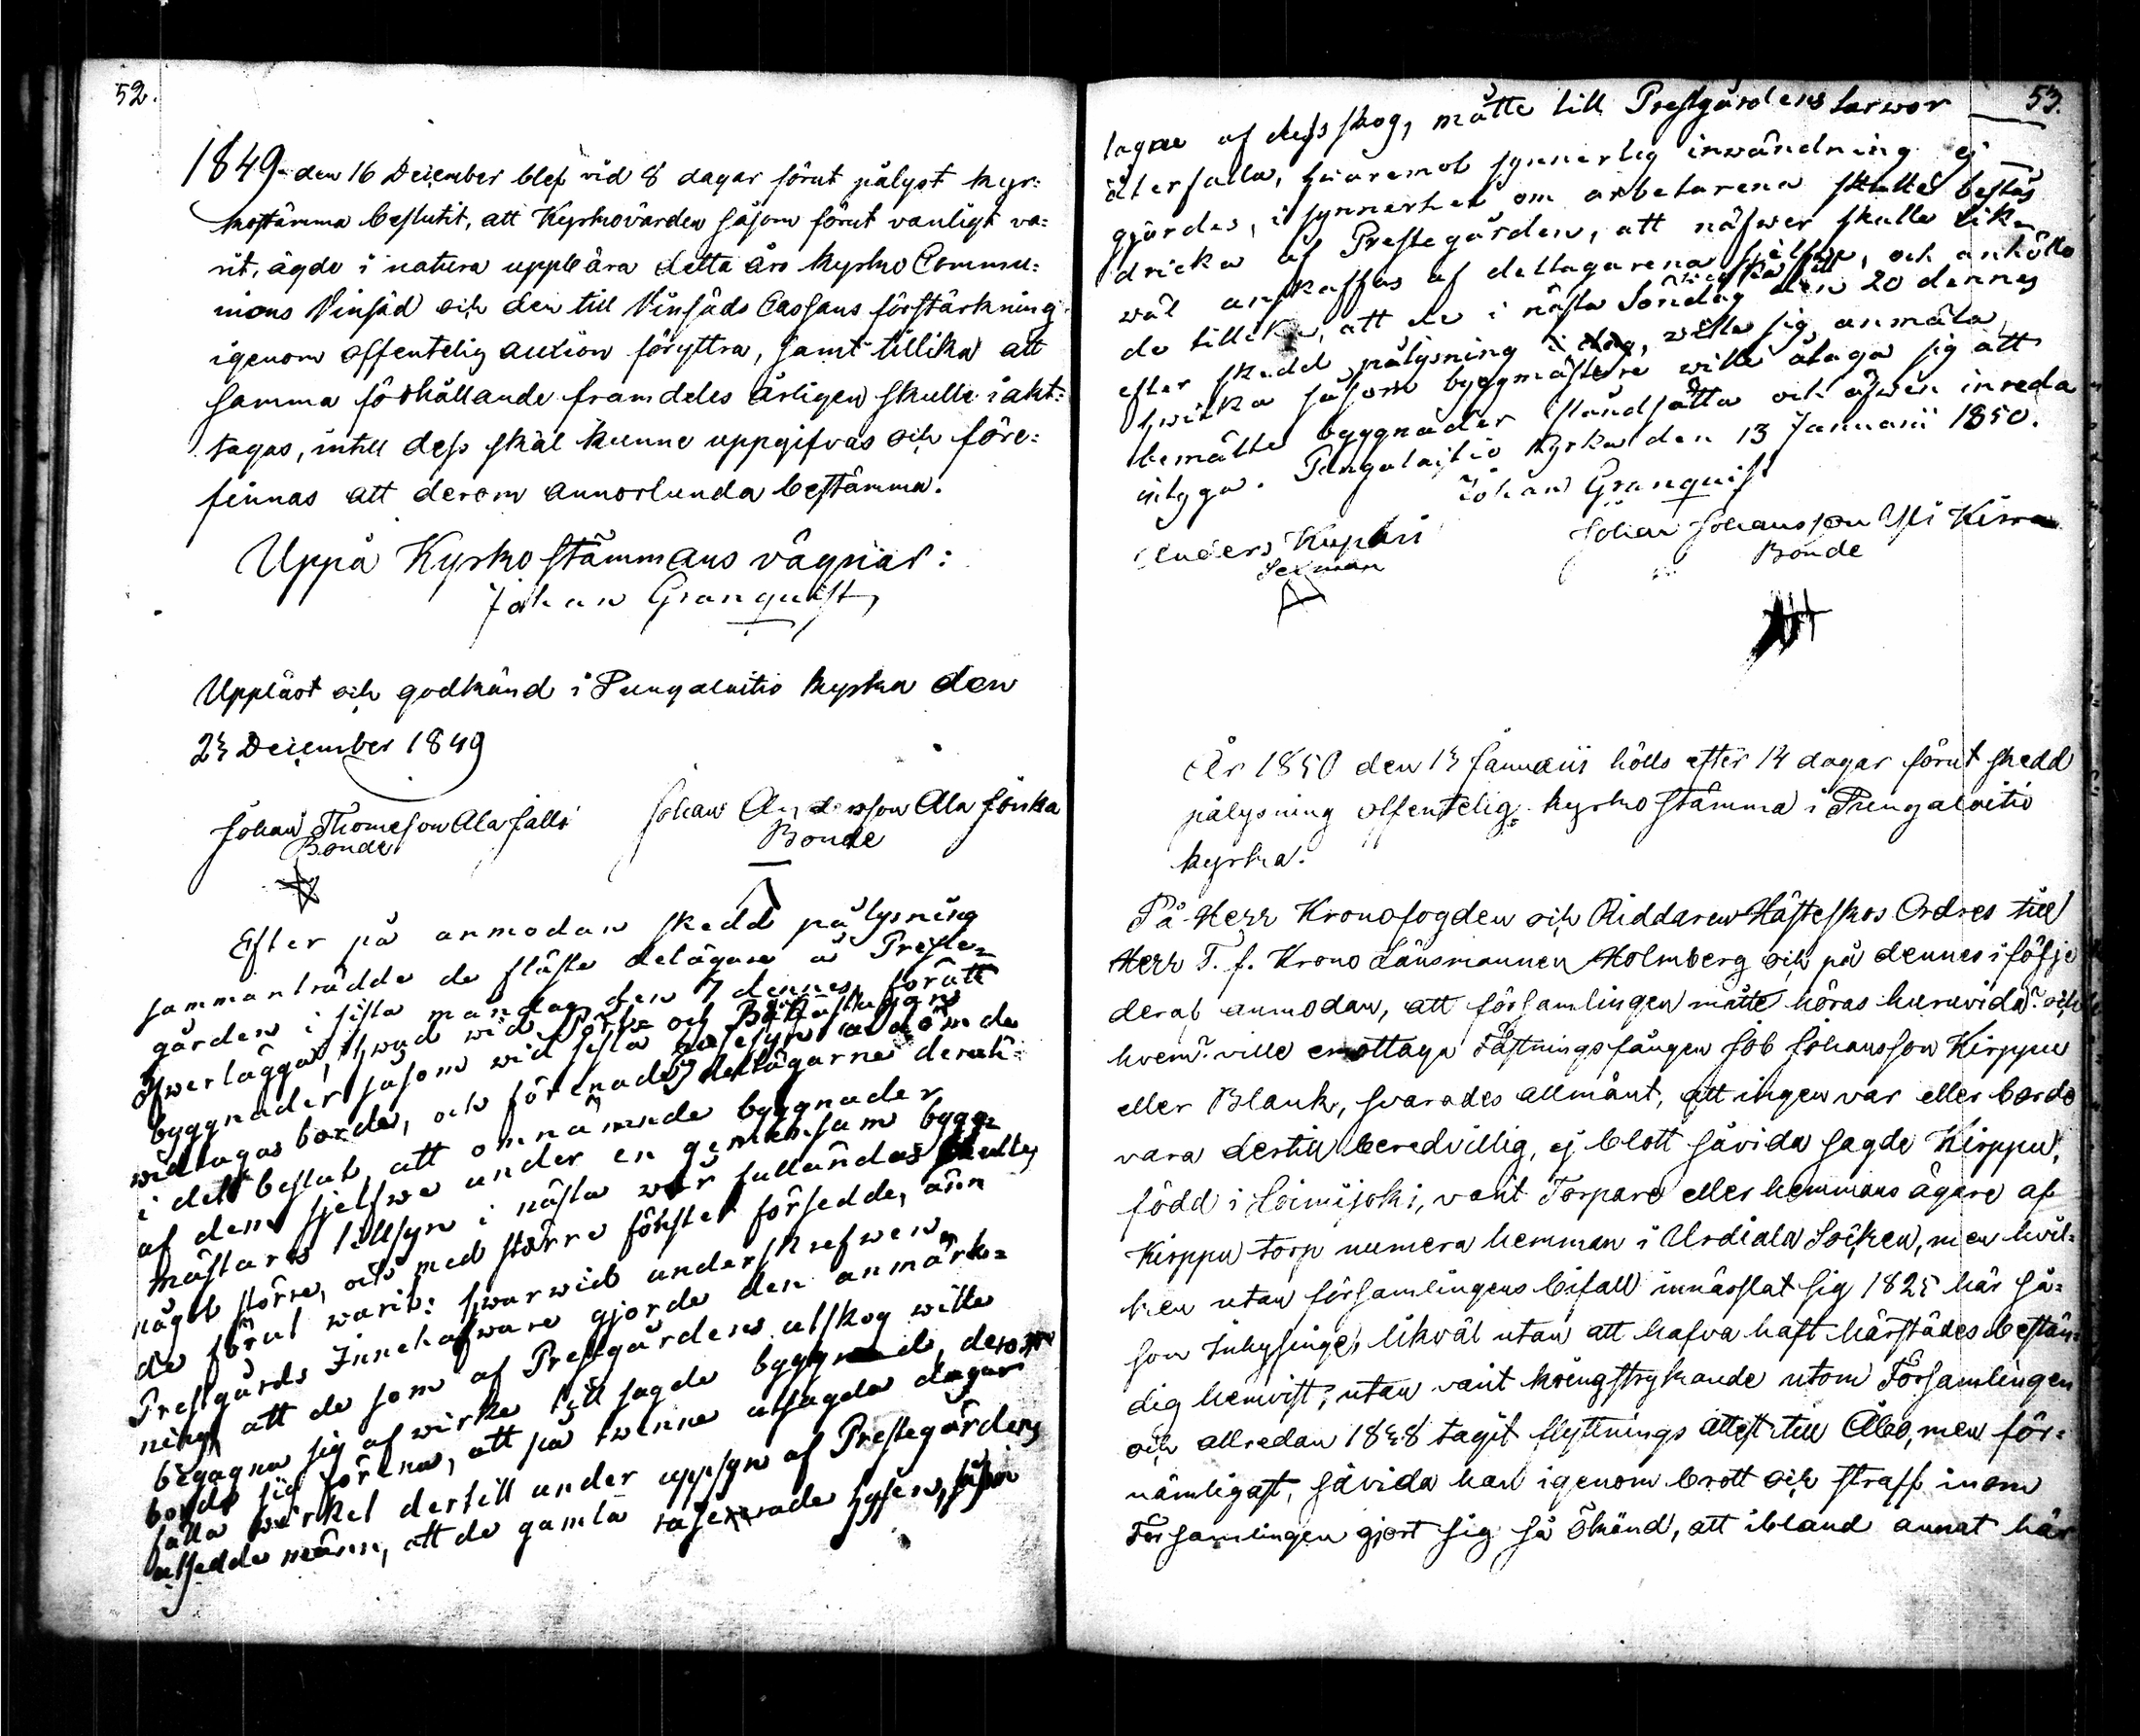 52.
1849 den 16 December blef vid 8 dagar förut pålyst kyr:
kostämma beslutit, att Kyrkovärden såsom förut vanligt va:
rit, ägde i natura uppbära detta års kyrko Commu:
nions Vinsäd och den till Vinsäds Cassans förstärkning
igenom offentelig auction föryttra, samt tillika att
samma förhållande framdeles årligen skulle iakt:
tagas, intill dess skäl kunne uppgifvas och före:
finnas att derom annorlunda bestämma.
Uppå Kyrkostämmans vägnar:
Johan Granquist
Uppläst och godkänd i Pungalaitio kyrka den
23 December 1849
Johan Thomesson Ala Jalli Johan Andersson Ala Jönka
Bonde Bonde
Efter på anmodan skedd pålysning
sammanträdde de fläste delägare å Preste=
gården i sista måndag den 7 dennes, förätt
öfwerlägga, hwad wid Pört= och Bakustugan
byggnader såsom wid sista husesyn andömde
widtagas borde, och förenade delägarne derati=
i dett beslut, att omnämnde byggnader
af dem sjelfwe under en gemensam bygg=
mästares tillsyn i nästa wår fulländas skulle
något större, och med större fönster försedde, änn
de förut warit: hwarwid underskrefwen
Prestgårds Innehafware gjorde den anmärk=
ning att de som af Prestgårdens utskog wille
begagna sig af wirke till sagde byggnad, derom
borde sig förena, att på twenne utsagda dagar
fälla wirket dertill under uppsyn af Prestegårdens
utsedde männ, att de gamla raserade hysen,
53.
tagne af dess skog, måtte till Prestgårdens tarwor
återfalla, hwaremot synnerlig inwändning ej
gjordes, i synnerhet om arbetarena skulle bestås
dricka af Prestegården, att näfwer skulle lika
wäl anskaffas af deltagarena sjelfwe, och anhöllo
de tillika, att de i nästa Söndag den 20 dennes
efter skedd pålysning wille sig anmäla,
hwilka såsom byggmästare wille åtaga sig att
bemälte byggnader ståndsätta och äfwen inreda
utyga. Pungalaitio Kyrka den 13 Januarii 1850.
Johan Granquist
Anders Kuppari Johan Johansson Yli Kirra
Sexman Bonde
År 1850 den 13 Januarii hölls efter 14 dagar förut skedd
pålysning offentelig kyrkostämma i Pungalaitio
kyrka.
På Herr Kronofogden och Riddaren Hästeskos Ordres till
Herr T. f. Krono Länsmannen Holmberg och på dennes i följe
deraf anmodan, att församlingen måtte höras huruvida? och
hvem? ville emottaga Fästningsfången Job Johansson Kirppu
eller Blank, svarades allmänt, att ingen var eller borde
vara dertill beredvillig, ej blott såvida sagde Kirppu,
född i Loimijoki, varit Torpare eller hemmans ägare af
Kirppu torp numera hemman i Urdiala Socken, men hvil:
ken utan församlingens bifall innästlat sig 1825 här så:
som Inhysinge, likväl utan att hafva haft härstädes bestän:
dig hemvist, utan varit kringstrykande utom Församlingen
och allredan 1838 tagit flyttnings attest till Åbo, men för:
nämligast, såvida han igenom brott och straff inom
Församlingen gjort sig så Ökänd, att ibland annat här